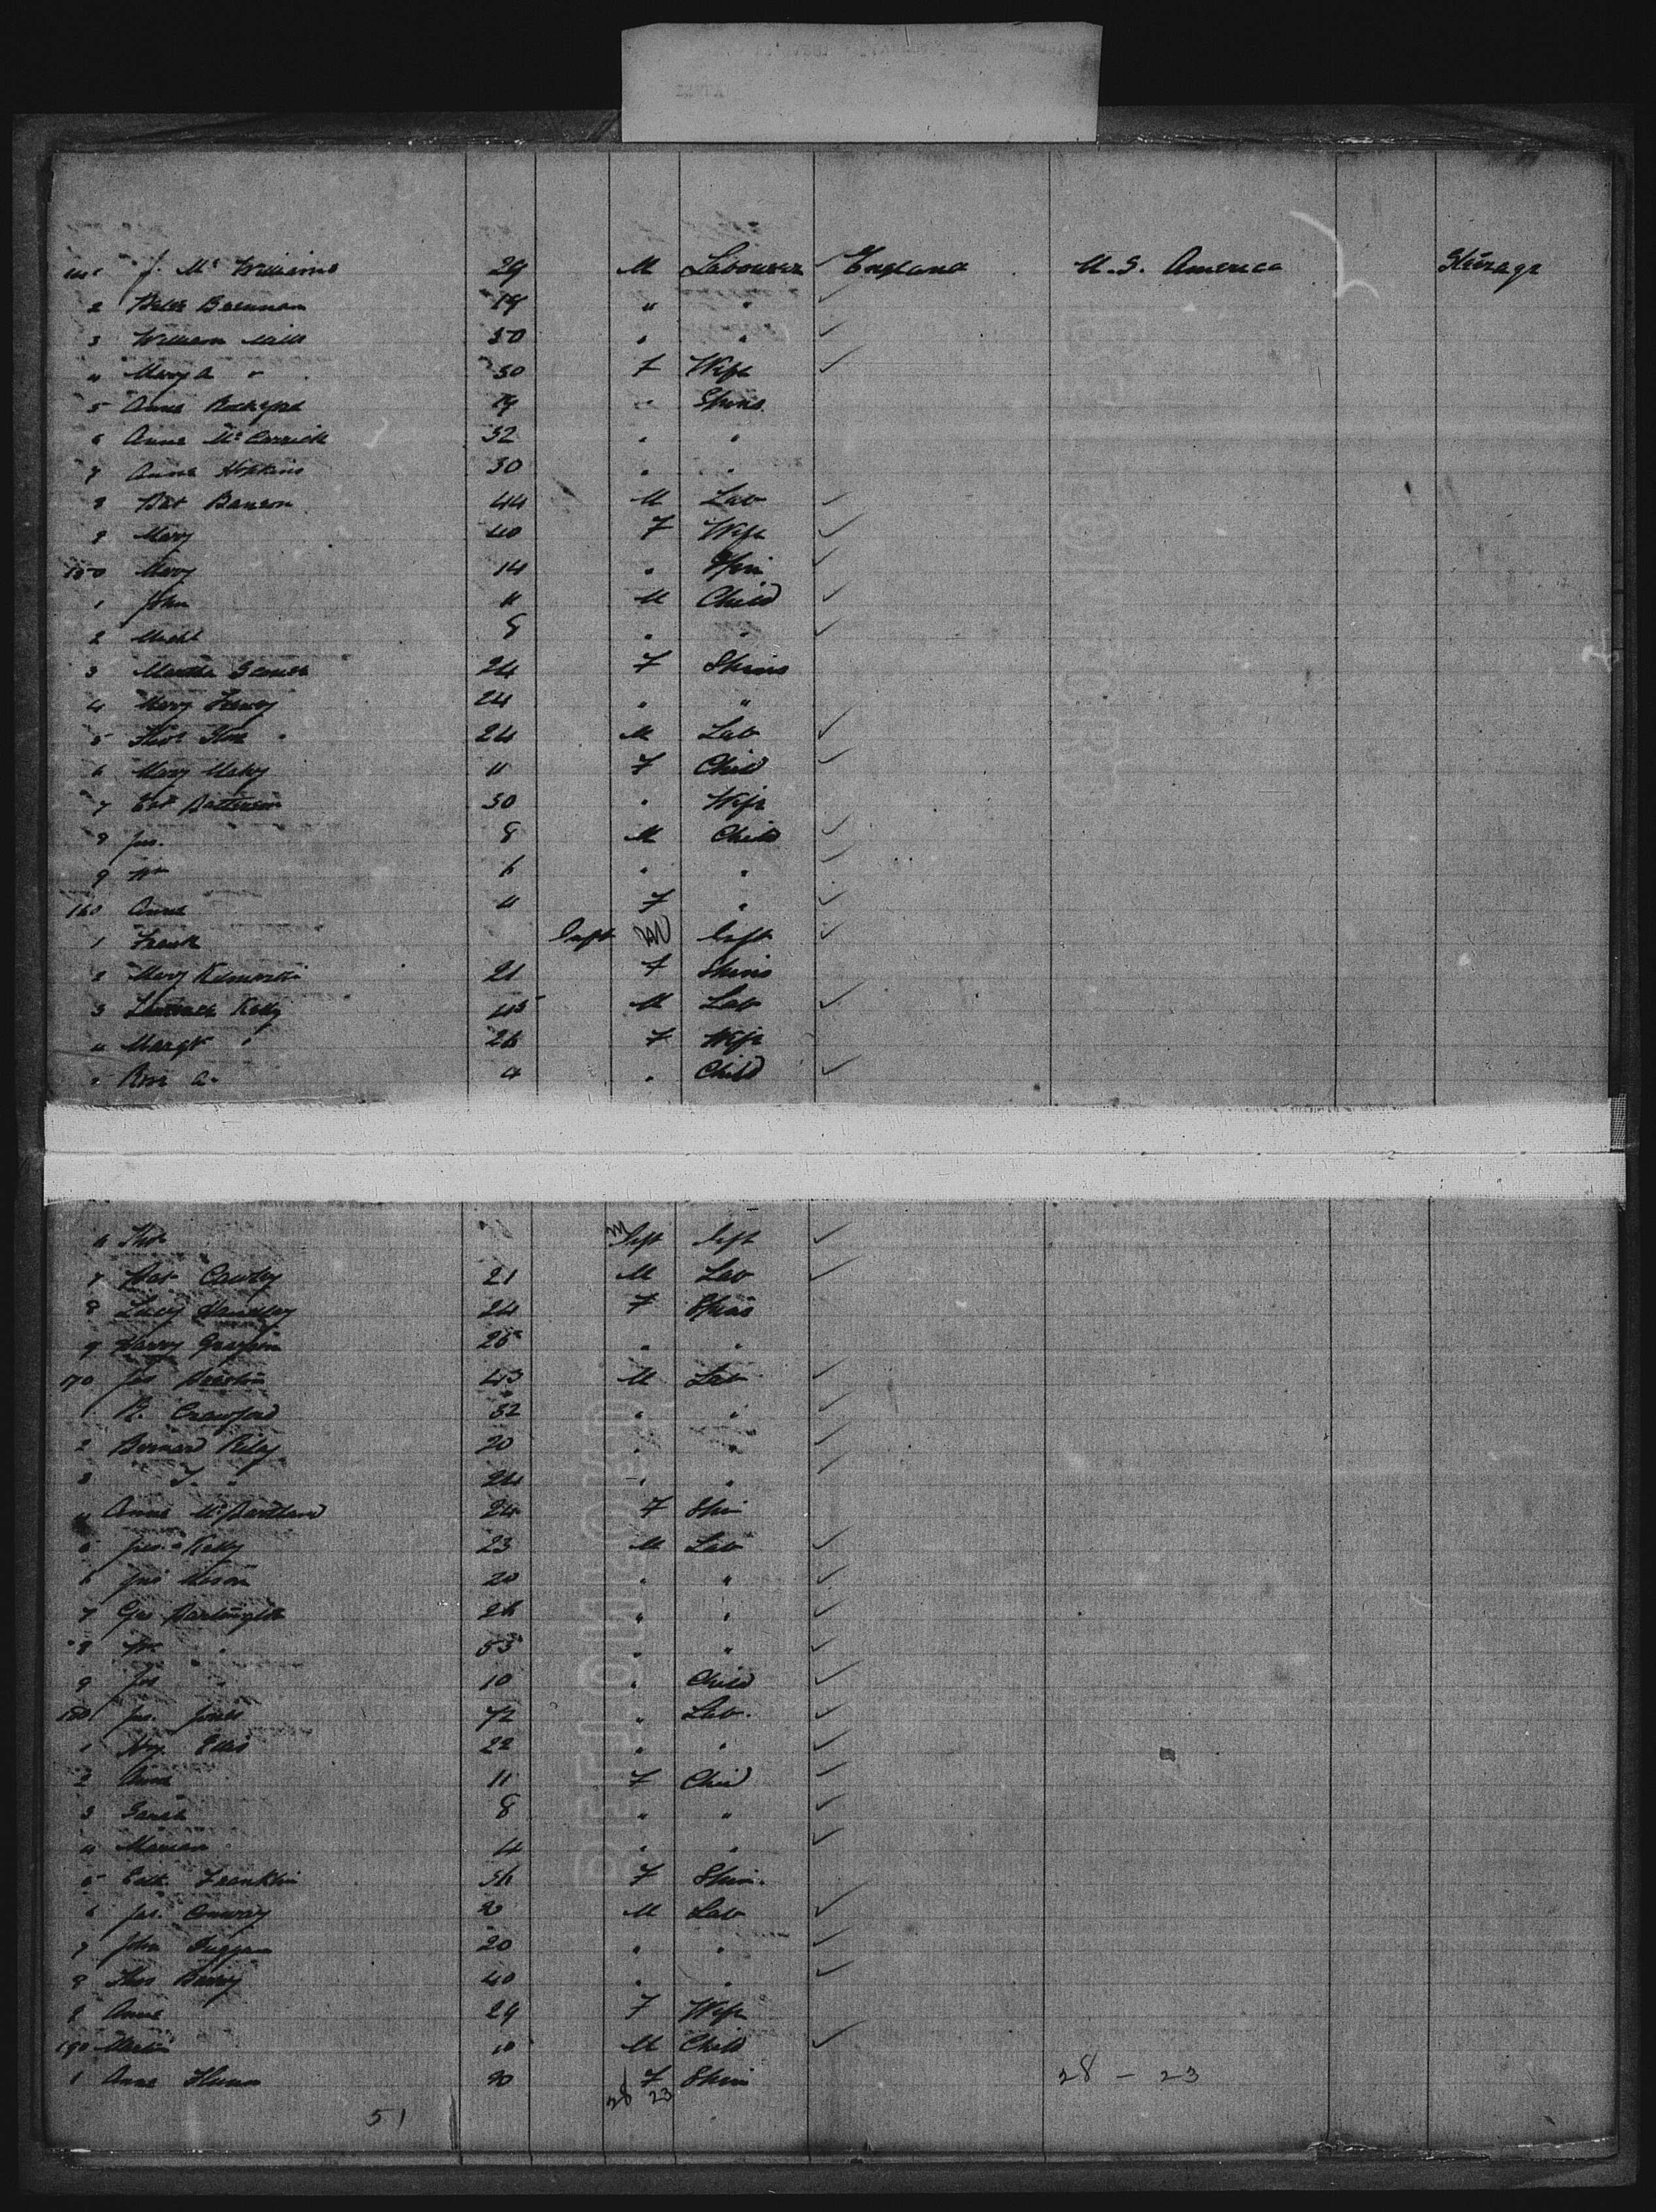 J. Mc Williams 29 M Labourer England U.S. America Steerage
2 Peter Brennan 19 " "
3 William 50 " "
4 Mary A " 50 F Wife
5 Anne 19 " Spins
6 Anne Mc Carrick 32 " "
7 Anne Hopkins 30 " "
8 Pat 44 M Lab
9 Mary 40 F Wife
150 Mary 14 " Spin
1 John 11 M Child
2 Michl 8 " "
3 Martha 24 F Spins
4 Mary 24 " "
5 Thos 24 M Lab
6 Mary 11 F Child
7 Patterson 30 " Wife
8 Jas. 8 M Child
9 Wm 6 " "
160 Anne 4 F "
1 Frank Inft M Inft
2 Mary 21 F Spins
3 Kelly 45 M Lab
4 Margt " 26 F Wife
" Rose A. 4 " Child
6 Thos M Inft Inft
7 Pat Cawley 21 M Lab
8 Lucy 24 F Spins
9 Harry 25 " "
170 Jas 43 M Lab
1 R. Crawford 32 " "
2 Bernard Riley 20 " "
3 J. " 24 " "
4 Anne Mc Partland 24 F Spin
5 Jas. Kelly 23 M Lab
6 20 " "
7 Geo 26 " "
8 Wm " 53 " "
9 Jos " 10 " Child
180 Jas. Jones 72 " Lab.
1 Hy. Ellis 22 " "
2 Anne 11 F Child
3 Sarah 8 " "
4 4 " "
5 Franklin 36 F Spin.
6 Jas. Conway M Lab
7 John Duggan 20 " "
8 Thos Barry 40 " "
9 Anne 29 F Wife
190 Martin 10 M Child
1 Anne F Spin
28 23 28 - 23
51